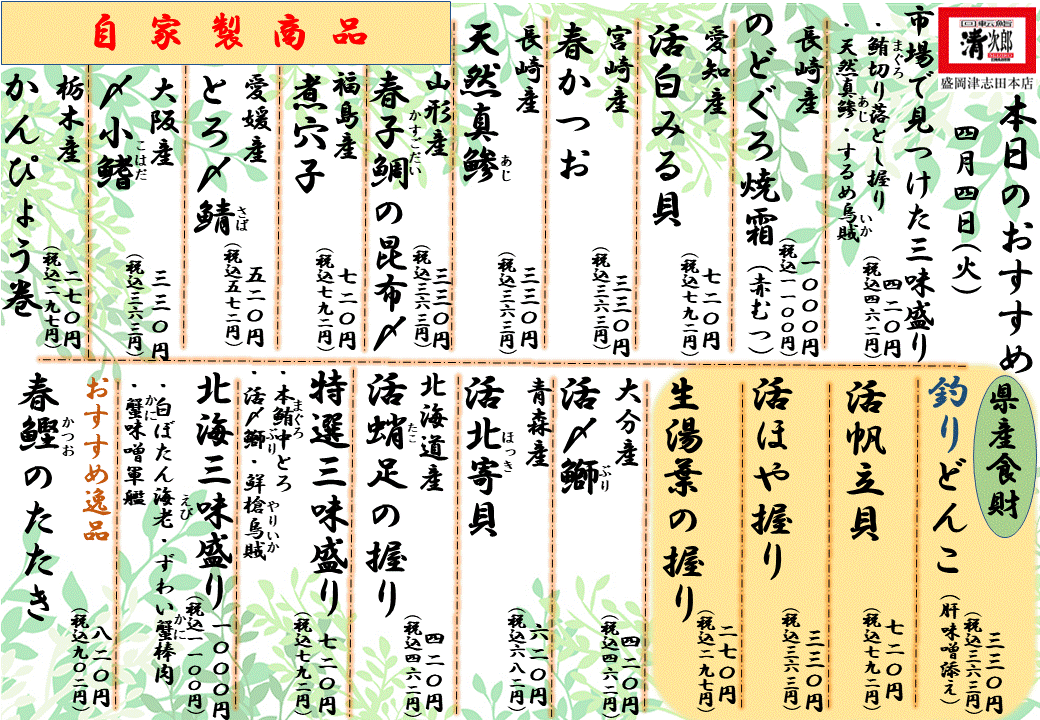 回転鮨
清次郎
盛岡津志田本店
本日のおすすめ
四月四日(火)
市場で見つけた三味盛り
・鮪切り落とし握り
まぐろ
・天然真鯵・するめ烏賊
あじ
いか
四二〇円
(税込四六二円)
長崎産
のどぐろ焼霜(赤むつ)
一〇〇〇円
(税込一一〇〇円)
愛知産
活白みる貝
七二〇円
(税込七九二円)
宮崎産
春かつお
三三〇円
(税込三六三円)
長崎産
天然真鯵
あじ
三三〇円
(税込三六三円)
自家製商品
山形産
春子鯛の昆布〆
かすごだい
三三〇円
(税込三六三円)
福島産
煮穴子
七二〇円
(税込七九二円)
愛媛産
とろ〆鯖
さば
五二〇円
(税込五七二円)
大阪産
〆小鰭
こはだ
三三〇円
(税込三六三円)
栃木産
かんぴょう巻
二七〇円
(税込二九七円)
県産食財
釣りどんこ
(肝味噌添え)
三三〇円
(税込三六三円)
活帆立貝
七二〇円
(税込七九二円)
活ほや握り
三三〇円
(税込三六三円)
生湯葉の握り
二七〇円
(税込二九七円)
大分産
活〆鰤
ぶり
四二〇円
(税込四六二円)
青森産
活北寄貝
ほっき
六二〇円
(税込六八二円)
北海道産
活蛸足の握り
たこ
四二〇円
(税込四六二円)
特選三味盛り
・本鮪中とろ
まぐろ
・活〆鰤・鮮槍烏賊
ぶり
やりいか
七二〇円
(税込七九二円)
北海三味盛り
・白ぼたん海老・ずわい蟹棒肉
えび
かに
・蟹味噌軍艦
かに
一〇〇〇円
(税込一一〇〇円)
おすすめ逸品
春鰹のたたき
かつお
八二〇円
(税込九〇二円)